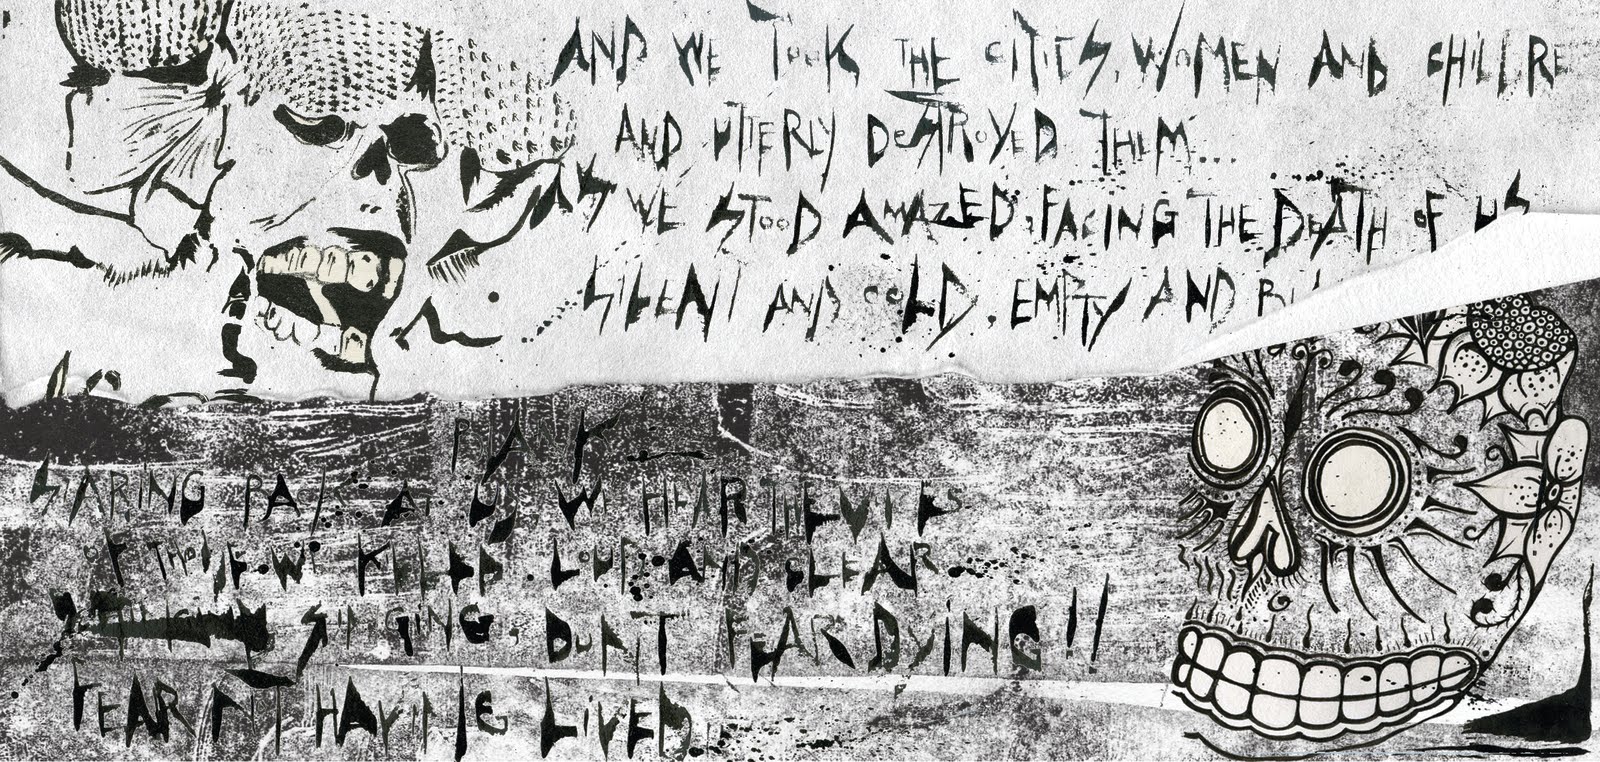 AND WE TOOK THE CITIES, WOMEN AND CHILLRE
AND UTTERLY DESTROYED THEM...
AS WE STOOD AMAZED, FACING THE DEATH OF US
SILENT AND COLD, EMPTY AND
BLANK —
STARING BACK AT US, WE HEAR THE VOICES
OF THOSE WE KILLED. LOUD AND CLEAR
SINGING, DON'T FEAR DYING!!
FEAR NOT HAVING LIVED.